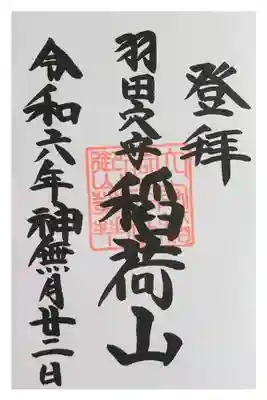 登拜
羽田穴守
稲荷山
令和六年神無月廿二日